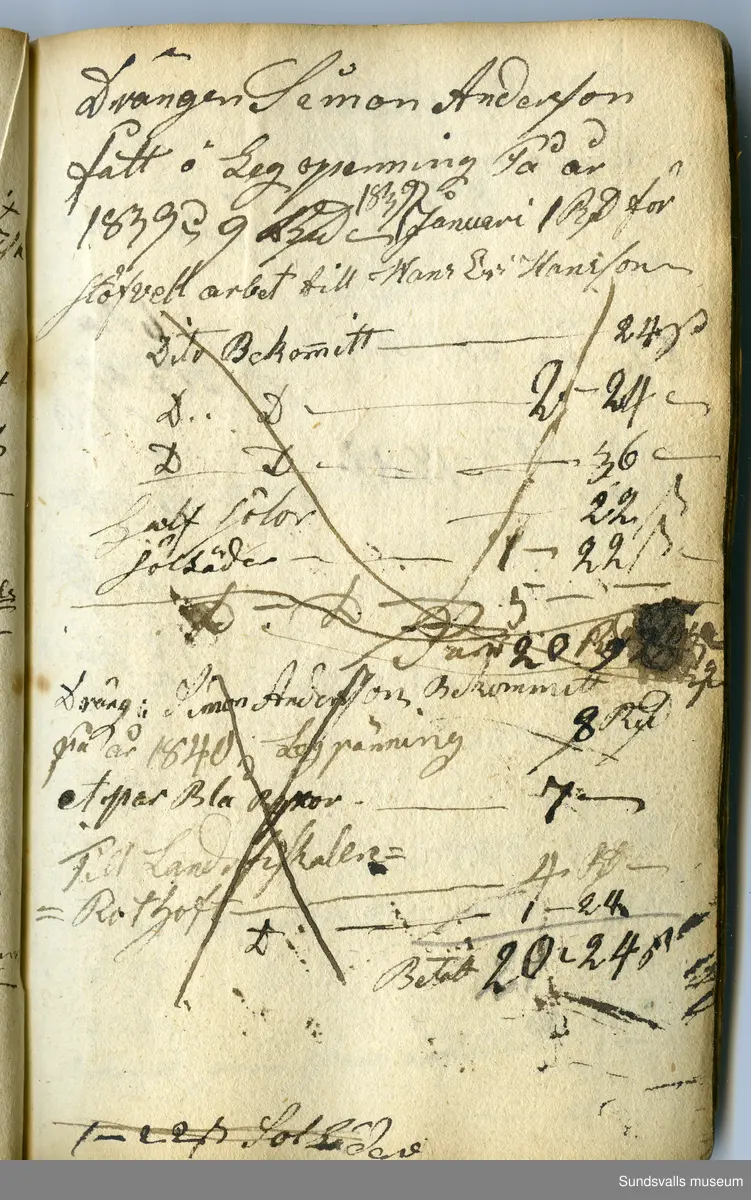 Drängen Simon Anderson
fått i Leg openning På år
1839 9 Rd 1839 Januari 1 RD för
stöfvell arbet till Hans Ers Hansson
Dito Bekomitt 24 ß
D.. D 2 - 24
D D 36
Half sölor 22 ß
solläder 1 - 22 ß
D - D. 5 - -
20
Dräng: Simon Anderson Bekommitt
På år 1840 Legpänning 8 Rd
et par Blå Byxor 7
Till Landsfiskalen =
= Rothoft 4 Rd
D 1 - 24
Betalt 20 - 24 ß
1 - 22 ß Solläder
Sundsvalls museum